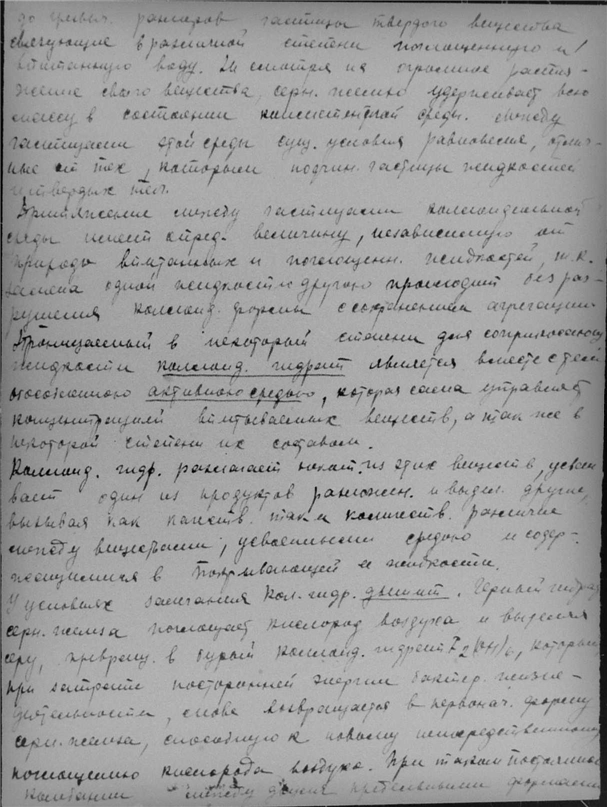 до громад. размеров частицы твердого вещества
связующие в различной степени поглощенную и
впитанную воду. Не смотря на огромное растя-
жение своего вещества, серн. железо удерживает всю
массу в состоянии консистентной среды. Между
частицами этой среды сущ. условия равновесия, отлич-
ные от тех, которым подчин. частицы жидкостей
и твердых тел.
Притяжение между частицами коллоидальной
среды имеет опред. величину, независимую от
природы впитанных и поглощенн. жидкостей, т.к.
замена одной жидкости другою происходит без раз-
рушения коллоид. формы с сохранением агрегации.
Проницаемый в некоторый степени для соприкасающ.
жидкости коллоид. гидрат является вместе с тем
обособленною активною средою, которая сама управляет
концентрацией впитываемых веществ, а так же в
некоторой степени их составом.
Коллоид. гидр. разлагает некот. из этих веществ, усваи
вает один из продуктов разложен. и выдел. другие,
вызывая как качеств. так и количеств. различие
между веществами, усвоенными средою и содер-
жащимися в покрывающей ее жидкости.
У условиях замирания кол. гидр. дышит. Черный гидрат
серн. железа поглощает кислород воздуха и выделяя
серу, превращ. в бурый коллоид. гидрат F2(OH)6, который
при затрате посторонней энергии бактер. жизне-
деятельности, снова возвращается в первонач. форму
серн. железа, способную к новому непосредственному
поглощению кислорода воздуха. При таком постоянном
колебании между двумя предельными формами